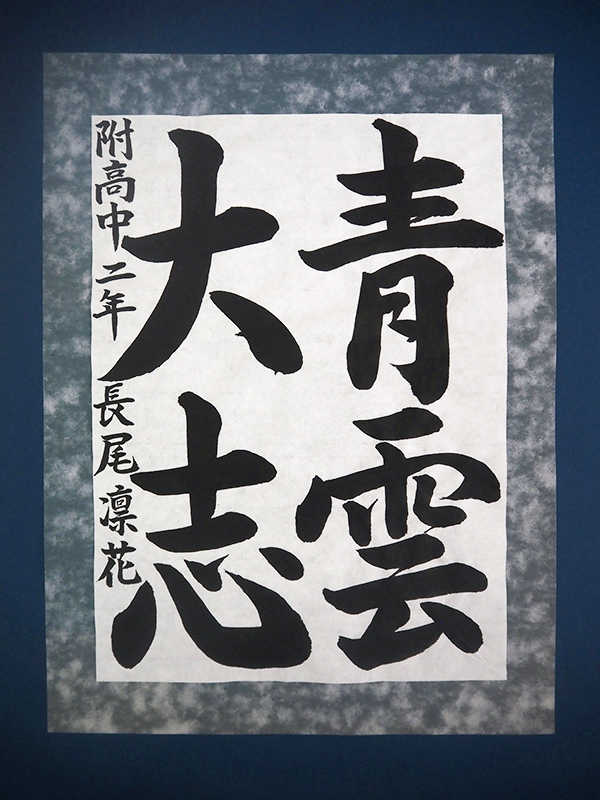 青雲
大志
附高中二年 長尾凛花